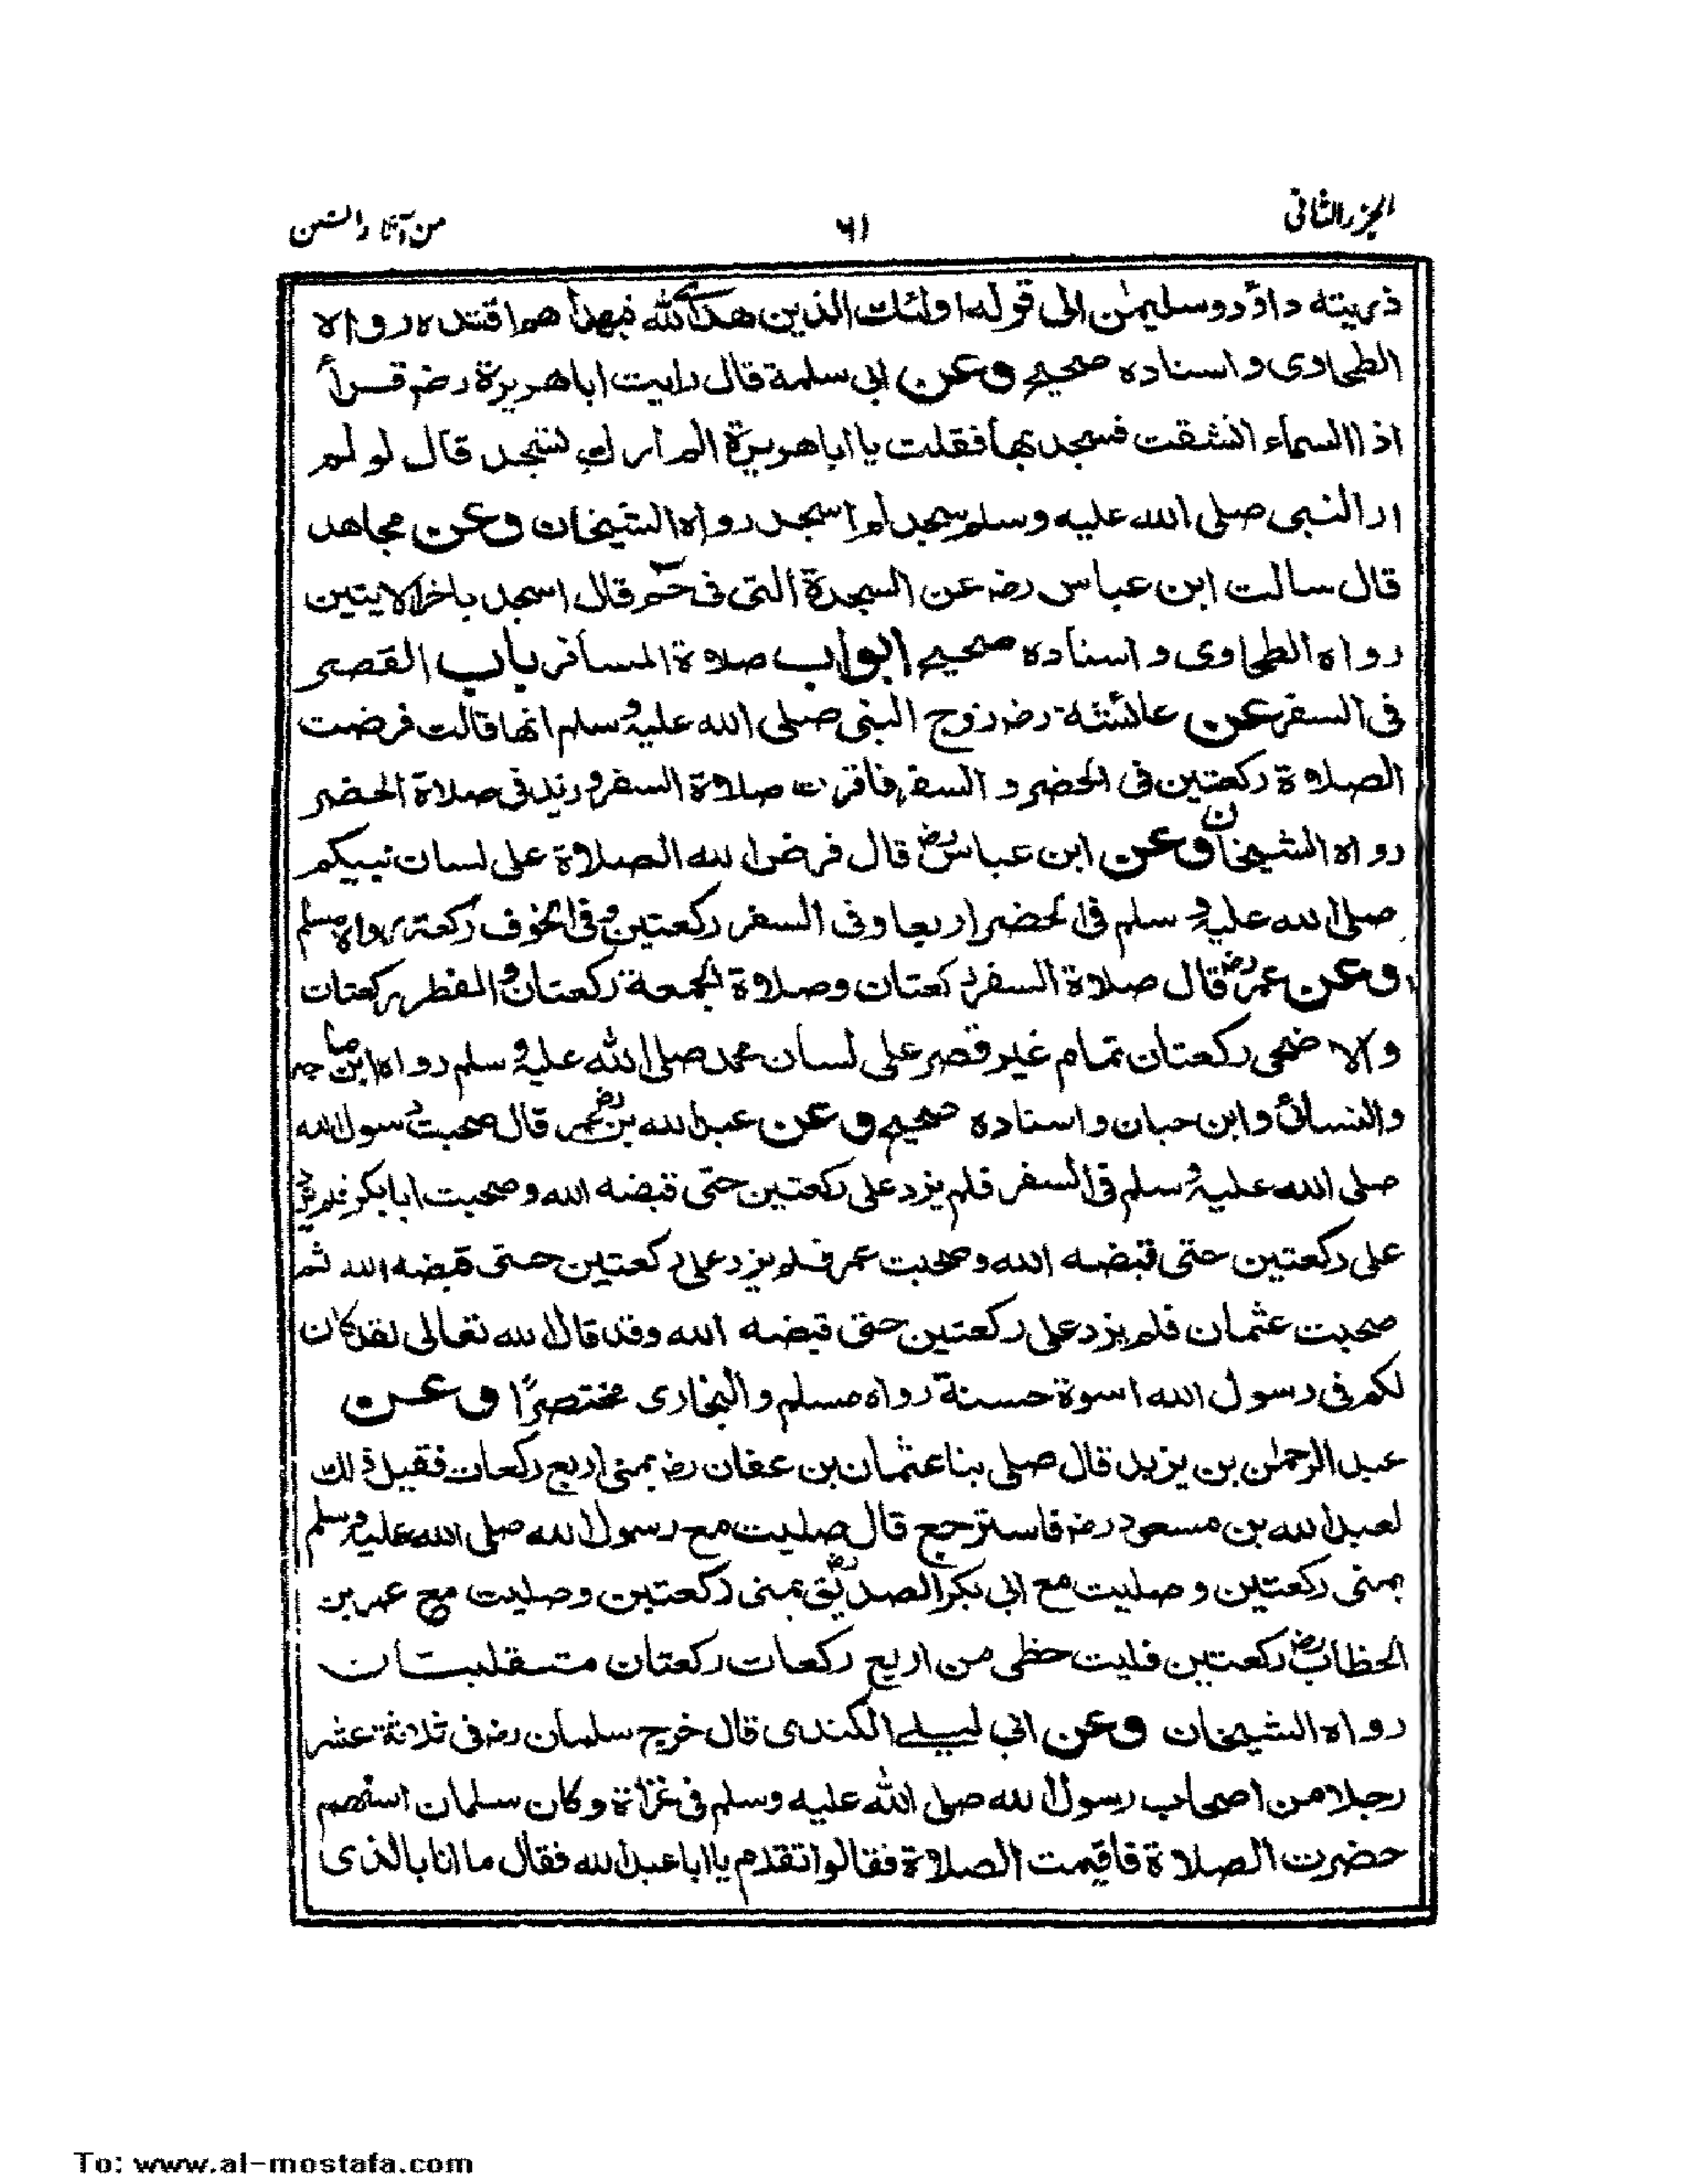 الجزء الثاني
٦١
من آثار السنن
ذريته داؤد وسليمٰن الى قوله اولئك الذين هدى الله فبهدٰهم اقتده رواه
الطحاوى واسناده صحيح وعن ابى سلمة قال رايت ابا هريرة رضـ قرأ
اذا السماء انشقت فسجد بها فقلت يا ابا هريرة الم ارك تسجد قال لو لم
ار النبى صلى الله عليه وسلم سجد لم اسجد رواه الشيخان وعن مجاهد
قال سالت ابن عباس رضـ عن السجدة التى فى حٓم قال اسجد باخر الايتين
رواه الطحاوى واسناده صحيح ابواب صلاة المسافر باب القصر
فى السفر عن عائشة رضـ زوج النبى صلى الله عليه وسلم انها قالت فرضت
الصلاة ركعتين فى الحضر و السفر فاقرت صلاة السفر وزيد فى صلاة الحضر
رواه الشيخان وعن ابن عباس رضـ قال فرض الله الصلاة على لسان نبيكم
صلى الله عليه وسلم فى الحضر اربعا وفى السفر ركعتين وفى الخوف ركعة رواه مسلم
وعن عمر رضـ قال صلاة السفر ركعتان وصلاة الجمعة ركعتان والفطر ركعتان
والاضحى ركعتان تمام غير قصر على لسان محمد صلى الله عليه وسلم رواه ابن ماجه
والنسائى وابن حبان واسناده صحيح وعن عبد الله بن عمر رضـ قال صحبت رسول الله
صلى الله عليه وسلم فى السفر فلم يزد على ركعتين حتى قبضه الله وصحبت ابا بكر فلم يزد
على ركعتين حتى قبضه الله وصحبت عمر فلم يزد على ركعتين حتى قبضه الله ثم
صحبت عثمان فلم يزد على ركعتين حتى قبضه الله وقد قال الله تعالى لقد كان
لكم فى رسول الله اسوة حسنة رواه مسلم والبخارى مختصرًا وعن
عبد الرحمٰن بن يزيد قال صلى بنا عثمان بن عفان رضـ بمنى اربع ركعات فقيل ذلك
لعبد الله بن مسعود رضـ فاسترجع قال صليت مع رسول الله صلى الله عليه وسلم
بمنى ركعتين وصليت مع ابى بكر الصديق رضـ بمنى ركعتين وصليت مع عمر بن
الخطاب رضـ ركعتين فليت حظى من اربع ركعات ركعتان متقبلتان
رواه الشيخان وعن ابى ليلى الكندى قال خرج سلمان رضـ فى ثلاثة عشر
رجلا من اصحاب رسول الله صلى الله عليه وسلم فى غزاة وكان سلمان اسنهم
حضرت الصلاة فاقيمت الصلاة فقالوا تقدم يا ابا عبد الله فقال ما انا بالذى
To: www.al-mostafa.com